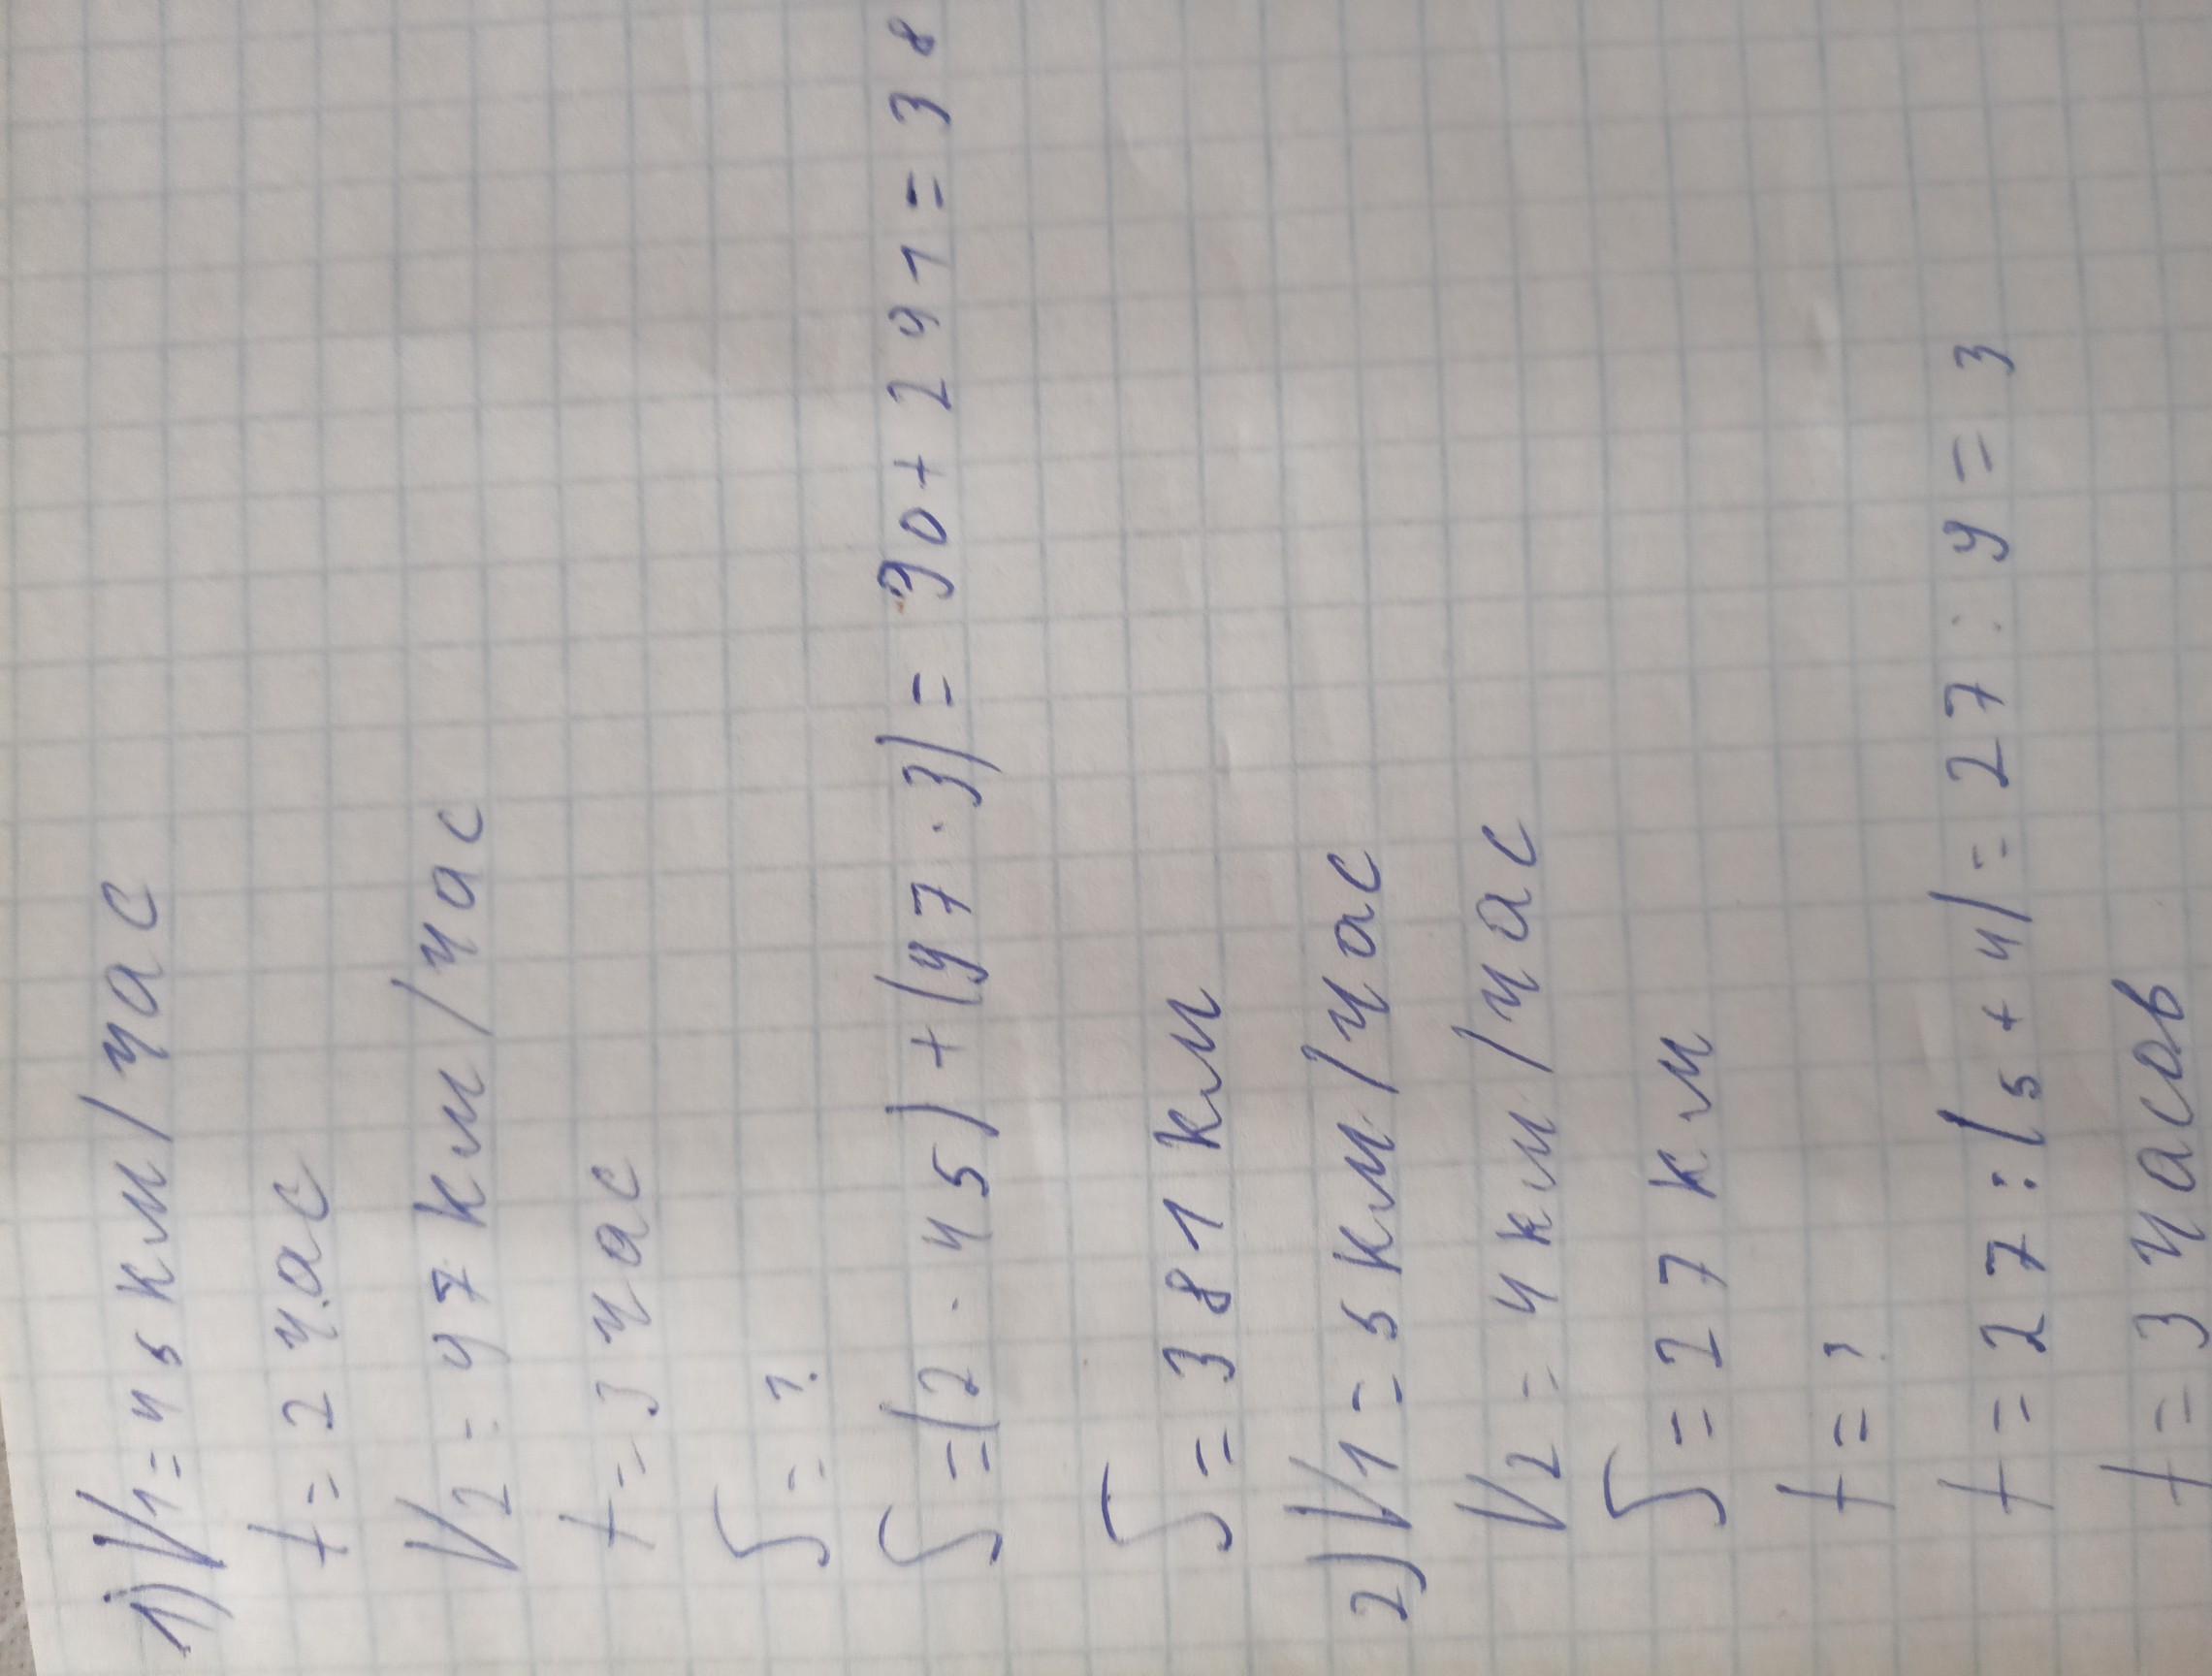 1) V1=45км/час
t=2час
V2=97км/час
t=3час
S=?
S=(2·45)+(97·3)=90+291=38
S=381км
2) V1=5км/час
V2=4км/час
S=27км
t=?
t=27:(5+4)=27:9=3
t=3часов